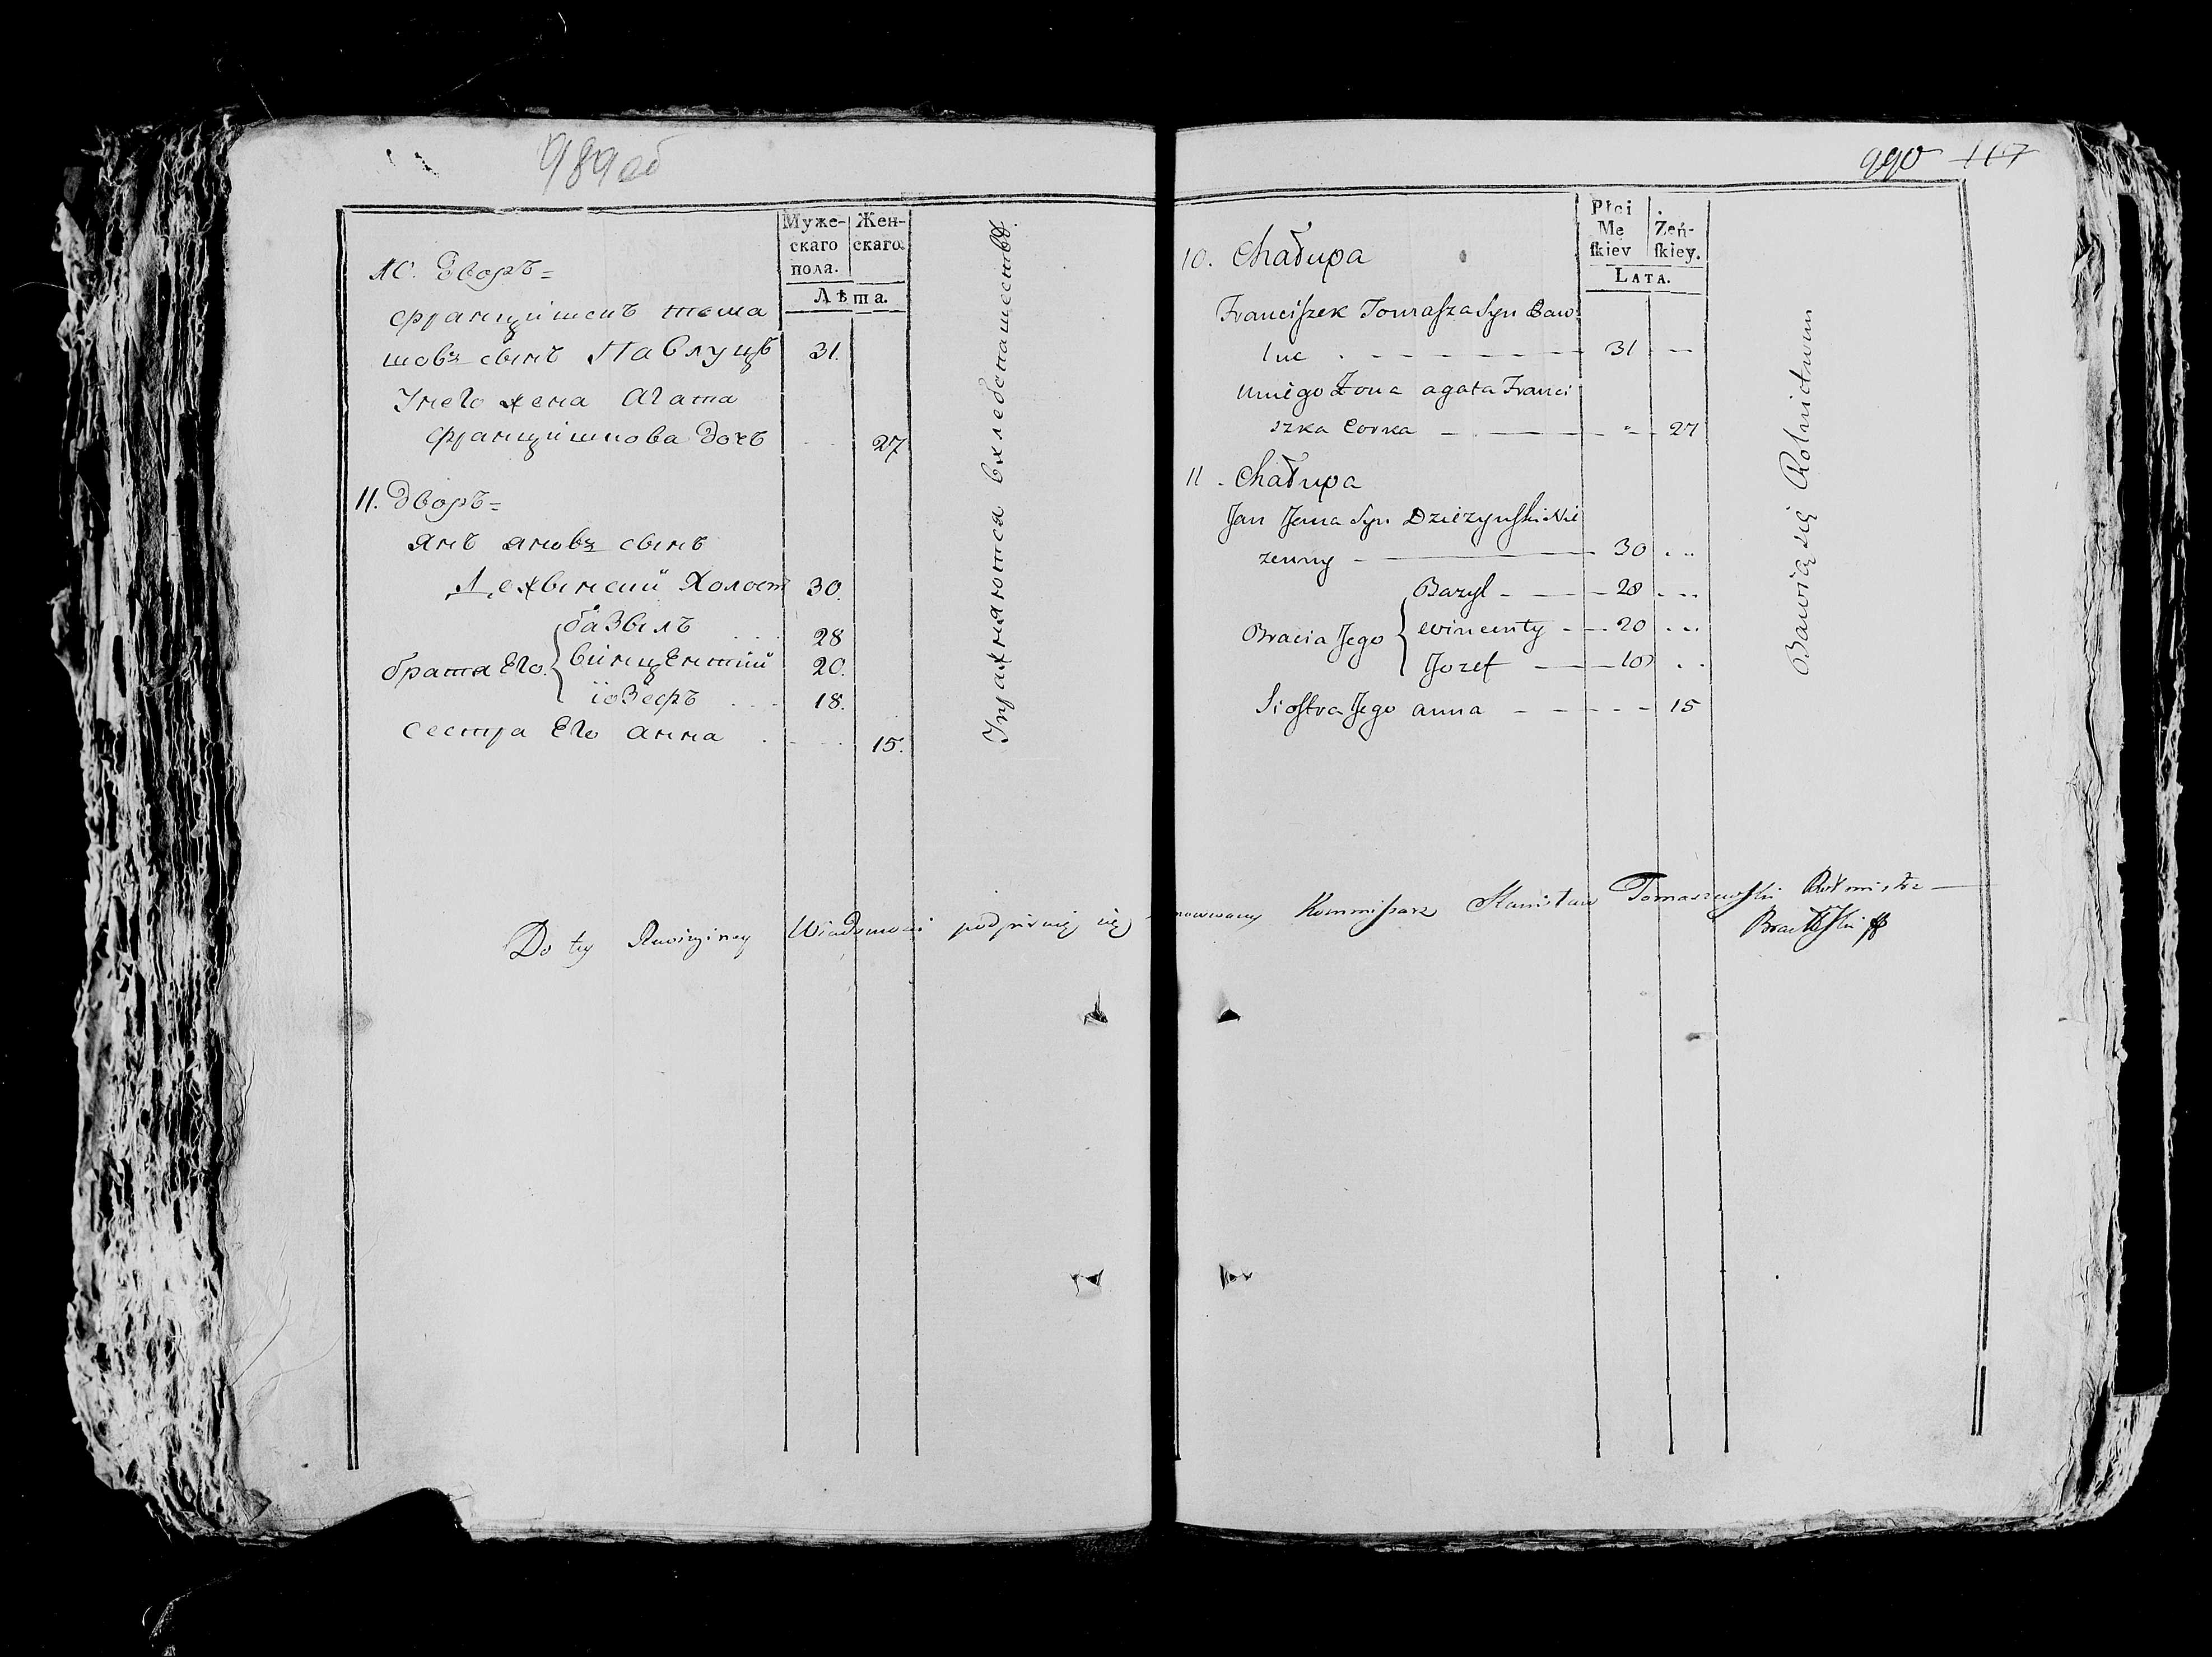 989 об
Муже-
скаго
пола.
Жен-
скаго.
Лѣта.
10. Дворъ =
Францишекъ тома
шовъ сынъ Павлуць 31.
У него жена Агата
Францишкова дочь 27
11. Дворъ =
Янъ яновъ сынъ
холост 30.
базыль 28
братя Его винцентий 20.
иозефъ 18.
сестра Его анна 15.
Упражняются в хлебопашестве.
990 117
Płci
Me
ſkiey
Żeń-
ſkiey.
LATA.
10. Chałupa
Franciſzek Tomaſza Syn Paw
luc 31
u niego Żona agata Franci
szka Corka 27
11. Chałupa
Jan Jana Syn Dzieżynſki Nie
żenny 30
Bazyl 28
Bracia Jego wincenty 20
Jozef 18
Sioſtra Jego anna 15
Bawią się Rolnictwem
Do tey Rewizyiney Wiadomosci podpisuię się Kommiſsarz Stanisław Tomaszewſki Rotmistrz
Bracławſki